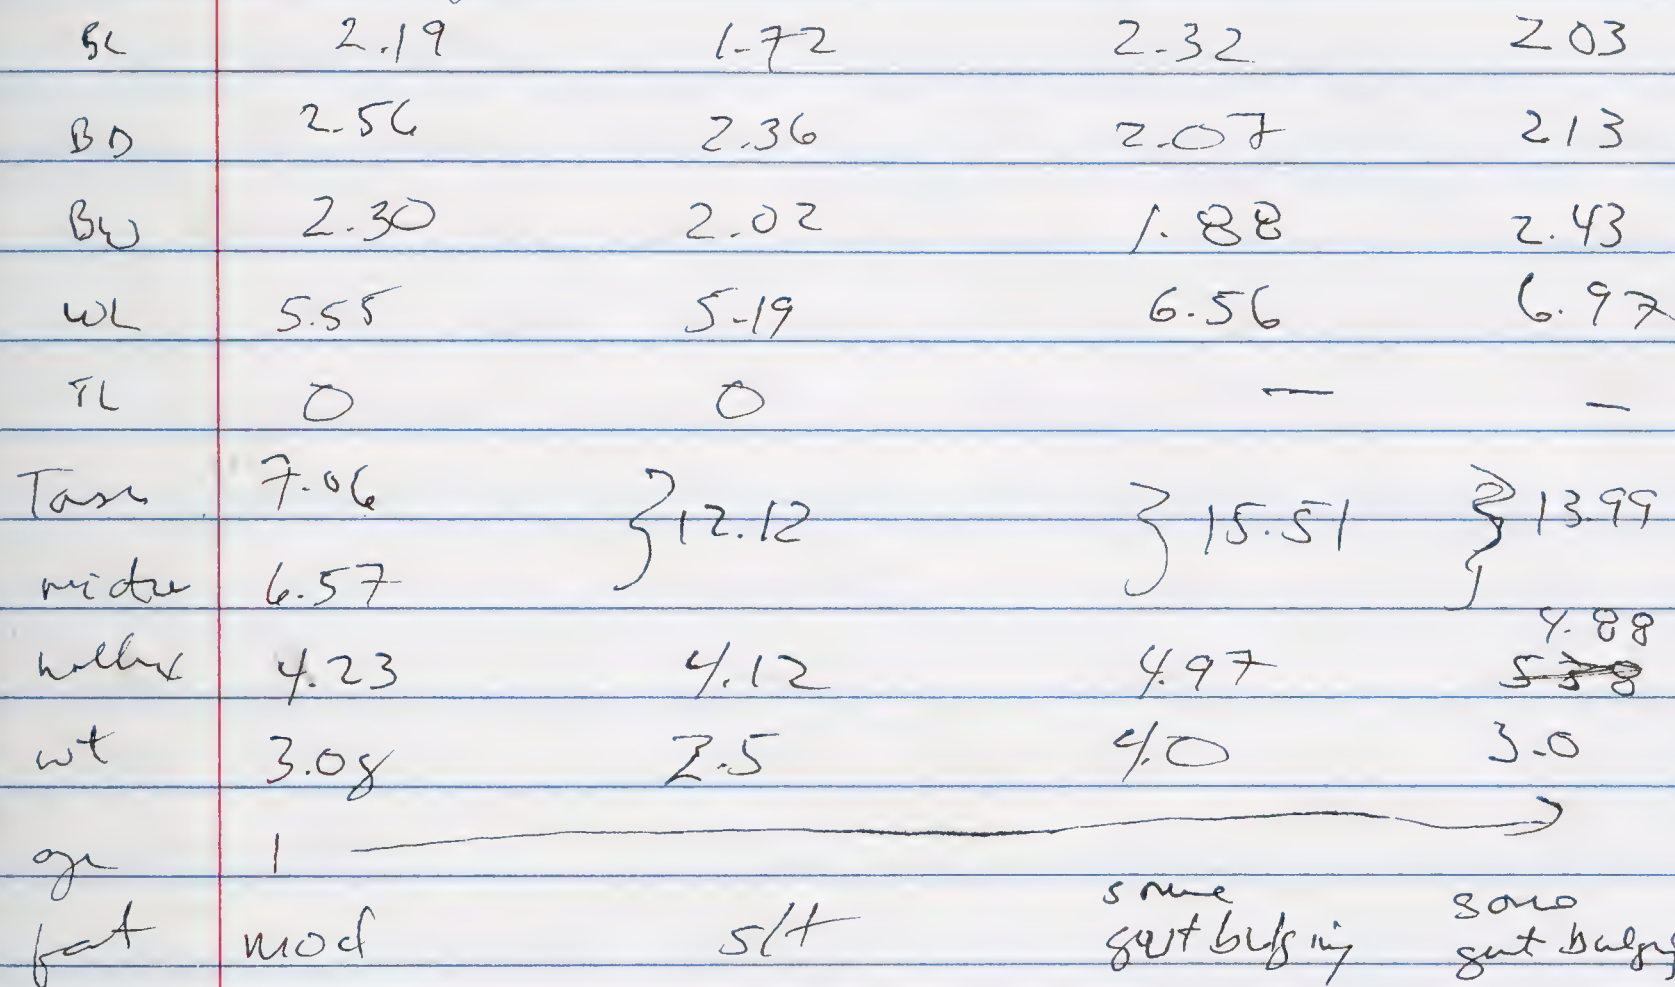 BL 2.19 1.72 2.32 2.03
BD 2.56 2.36 2.07 2.13
BW 2.30 2.02 1.88 2.43
WL 5.55 5.19 6.56 6.97
TL 0 0 — —
Tars 7.06 } 12.12 } 15.51 } 13.99
midtoe 6.57
4.88
hallux 4.23 4.12 4.97 538
wt 3.0g 2.5 4.0 3.0
age 1
fat mod slt some gut bulging some gut bulging